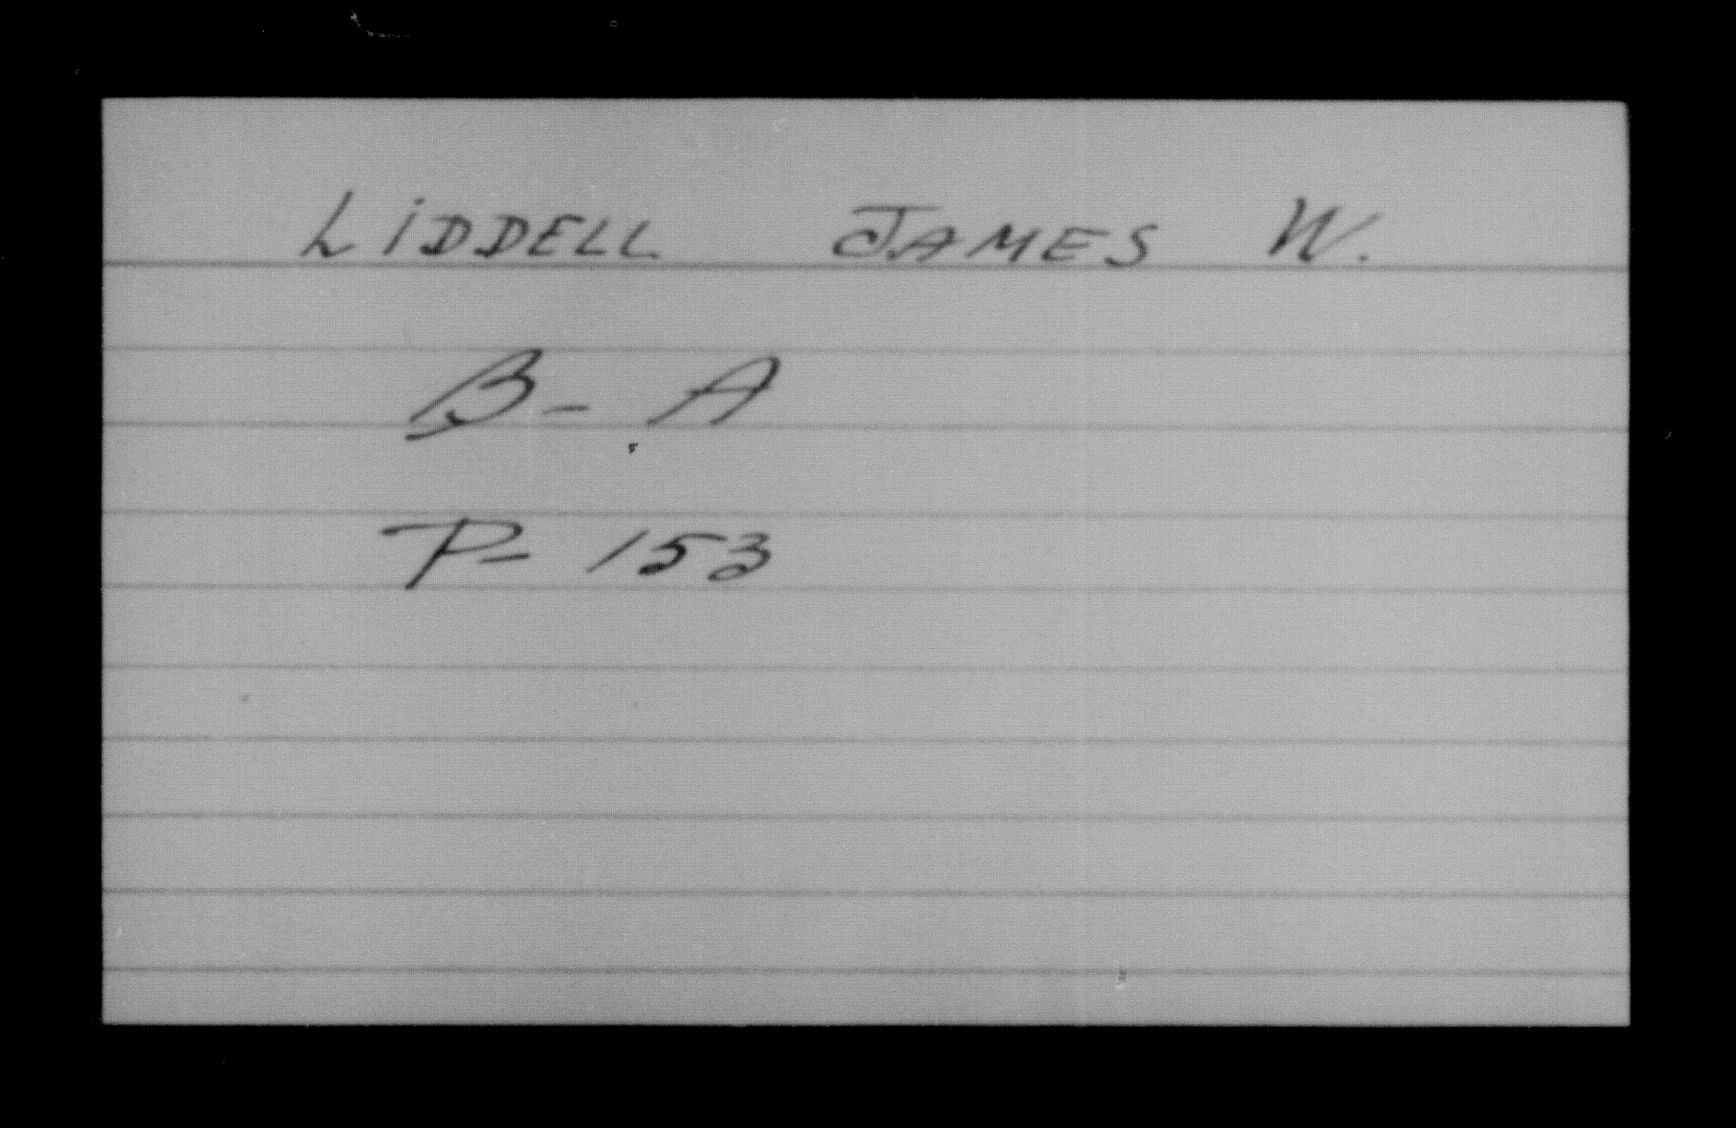 LIDDELL JAMES W.
B- A
P- 153